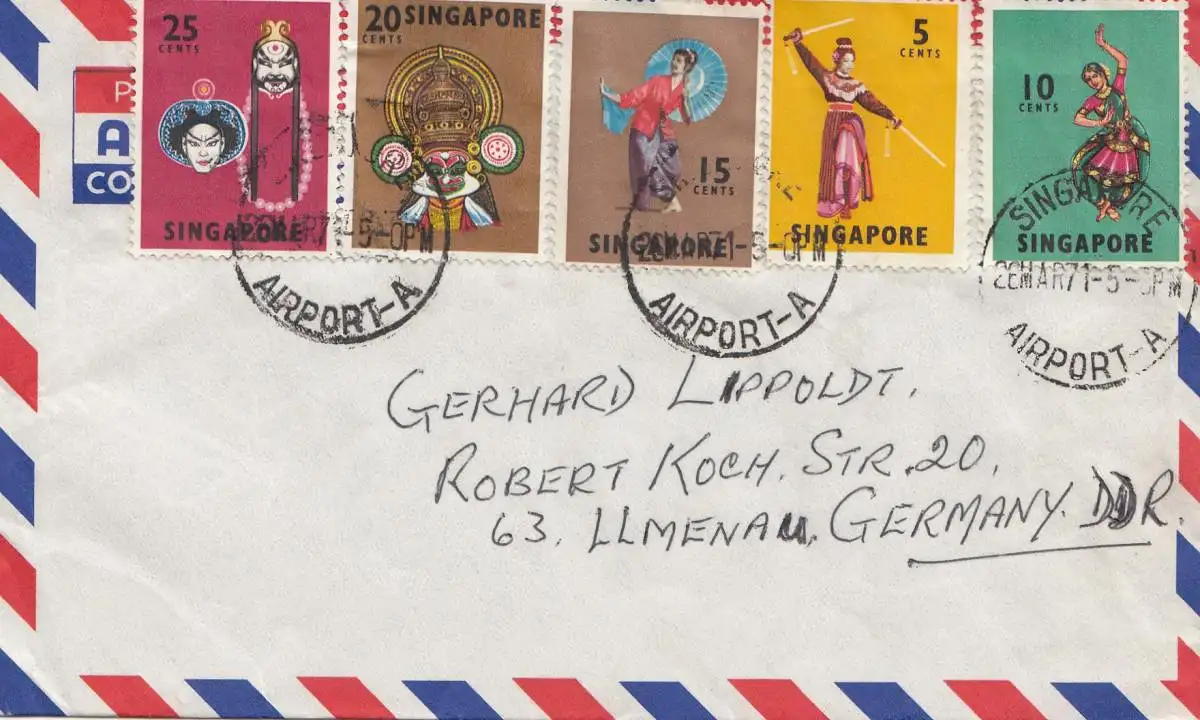 25
CENTS
SINGAPORE
20 SINGAPORE
CENTS
15
CENTS
SINGAPORE
5
CENTS
SINGAPORE
10
CENTS
SINGAPORE
P
A
CO
MAR71-5-0PM
AIRPORT-A
MAR71-5-0PM
AIRPORT-A
SINGAPORE
MAR71-5-0PM
AIRPORT-A
GERHARD LIPPOLDT.
ROBERT KOCH. STR. 20.
63. LLMENAU. GERMANY. DDR.